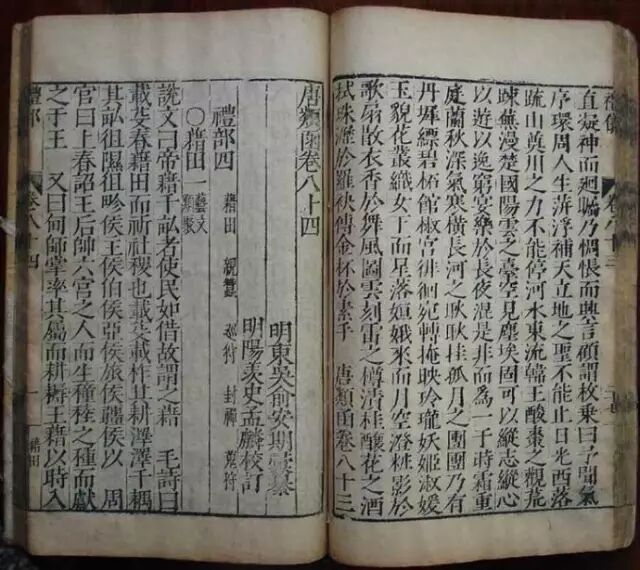 直凝神而迴矚乃惆悵而興言顧謂枚乗曰予聞氣
序環周人生萍浮補天立地之聖不能止日光西落
疏山奠川之力不能停河水東流韓王酸棗之觀荒
踈蕪漫楚國陽雲之臺空見塵埃固可以縱志縱心
以遊以逸窮宴樂於長夜混是非而為一于時霜重
庭蘭秋深氣寒橫長河之耿耿挂孤月之團團乃有
丹墀縹碧柘館椒宮徘徊宛轉掩映玲瓏妖姬淑媛
玉貌花叢織女下而星落姮娥來而月空灑粧影於
歌扇散衣香於舞風圖雲刻雷之樽漬桂釀花之酒
拭珠瀝於羅袂傅金杯於素手 唐類函卷八十三
唐類函卷八十四
明東吳俞安期
明陽羨史孟麟校訂
禮部四 藉田 親蠶 巡狩 封禪 蒐狩
○藉田一 藝文類聚
說文曰帝藉千畝者使民如借故謂之藉 毛詩曰
載芟春藉田而祈社稷也載芟載柞其耕澤澤千耦
其耘徂隰徂畛侯王侯伯侯亞侯旅侯彊侯以 周
官曰上春詔王后帥六官之人而生穜稑之種而獻
之于王 又曰甸師掌率其屬而耕耨王藉以時入
禮部 卷八十四 一 藉田